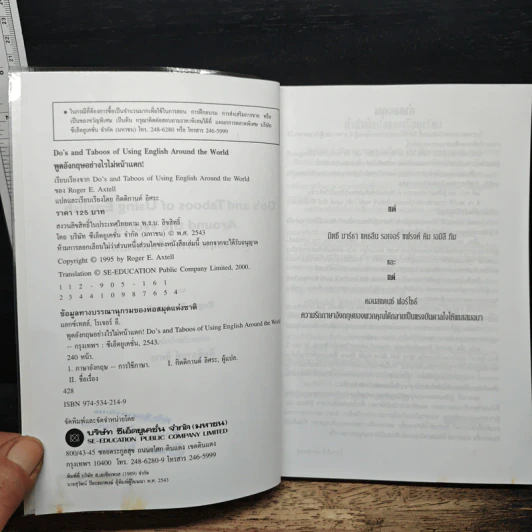 • ในกรณีที่ต้องการซื้อเป็นจำนวนมากเพื่อใช้ในการสอน การฝึกอบรม การส่งเสริมการขาย หรือ
เป็นของขวัญพิเศษ เป็นต้น กรุณาติดต่อสอบถามราคาพิเศษได้ที่ แผนกการตลาดพิเศษ บริษัท
ซีเอ็ดยูเคชั่น จำกัด (มหาชน) โทร. 248-6280 หรือ โทรสาร 246-5999
Do's and Taboos of Using English Around the World
พูดอังกฤษอย่างไรไม่หน้าแตก!
เรียบเรียงจาก Do's and Taboos of Using English Around the World
ของ Roger E. Axtell
แปลและเรียบเรียงโดย กิตติกานต์ อิศระ
ราคา 125 บาท
สงวนลิขสิทธิ์ในประเทศไทยตาม พ.ร.บ. ลิขสิทธิ์
โดย บริษัท ซีเอ็ดยูเคชั่น จำกัด (มหาชน) © พ.ศ. 2543
ห้ามการลอกเลียนไม่ว่าส่วนหนึ่งส่วนใดของหนังสือเล่มนี้ นอกจากจะได้รับอนุญาต
Copyright © 1995 by Roger E. Axtell
Translation © SE-EDUCATION Public Company Limited, 2000.
1 1 2 - 9 0 5 - 1 6 1
2 3 4 4 1 0 9 8 7 6 5 4
ข้อมูลทางบรรณานุกรมของหอสมุดแห่งชาติ
แอกซ์เทลล์, โรเจอร์ อี.
พูดอังกฤษอย่างไรไม่หน้าแตก! Do's and Taboos of Using English Around the
– กรุงเทพฯ : ซีเอ็ดยูเคชั่น, 2543.
240 หน้า.
1. ภาษาอังกฤษ – การใช้ภาษา. I. กิตติกานต์ อิศระ, ผู้แปล.
II. ชื่อเรื่อง
428
ISBN 974-534-214-9
จัดพิมพ์และจัดจำหน่ายโดย
บริษัท ซีเอ็ดยูเคชั่น จำกัด (มหาชน)
SE-EDUCATION PUBLIC COMPANY LIMITED
800/43-45 ซอยตระกูลสุข ถนนอโศก-ดินแดง เขตดินแดง
กรุงเทพฯ 10400 โทร. 248-6280-9 โทรสาร 246-5999
แด่
มิตซี มาร์ธา แคธลีน รอเจอร์ แฟรงค์ คิม เอมิลี ทิม
และ
แด่
คอนสแตนซ์ ฟอร์ไซธ์
ความรักภาษาอังกฤษของพวกคุณได้กลายเป็นแรงบันดาลใจให้ผมเสมอมา